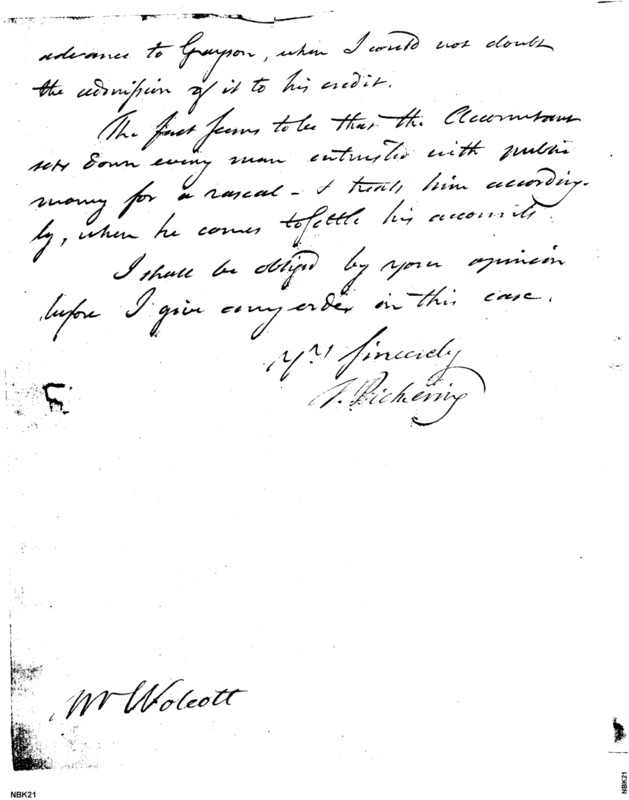 advance to Grayson, when I could not doubt
the admission of it to his credit.
The fact seems to be that the Accountant
sets down every man entrusted with public
money for a rascal - & treats him according-
ly, when he comes to settle his accounts.
I shall be obliged by your opinion
before I give any order in this case.
Yrs sincerely
T. Pickering
Mr Wolcott
NBK21
NBK21